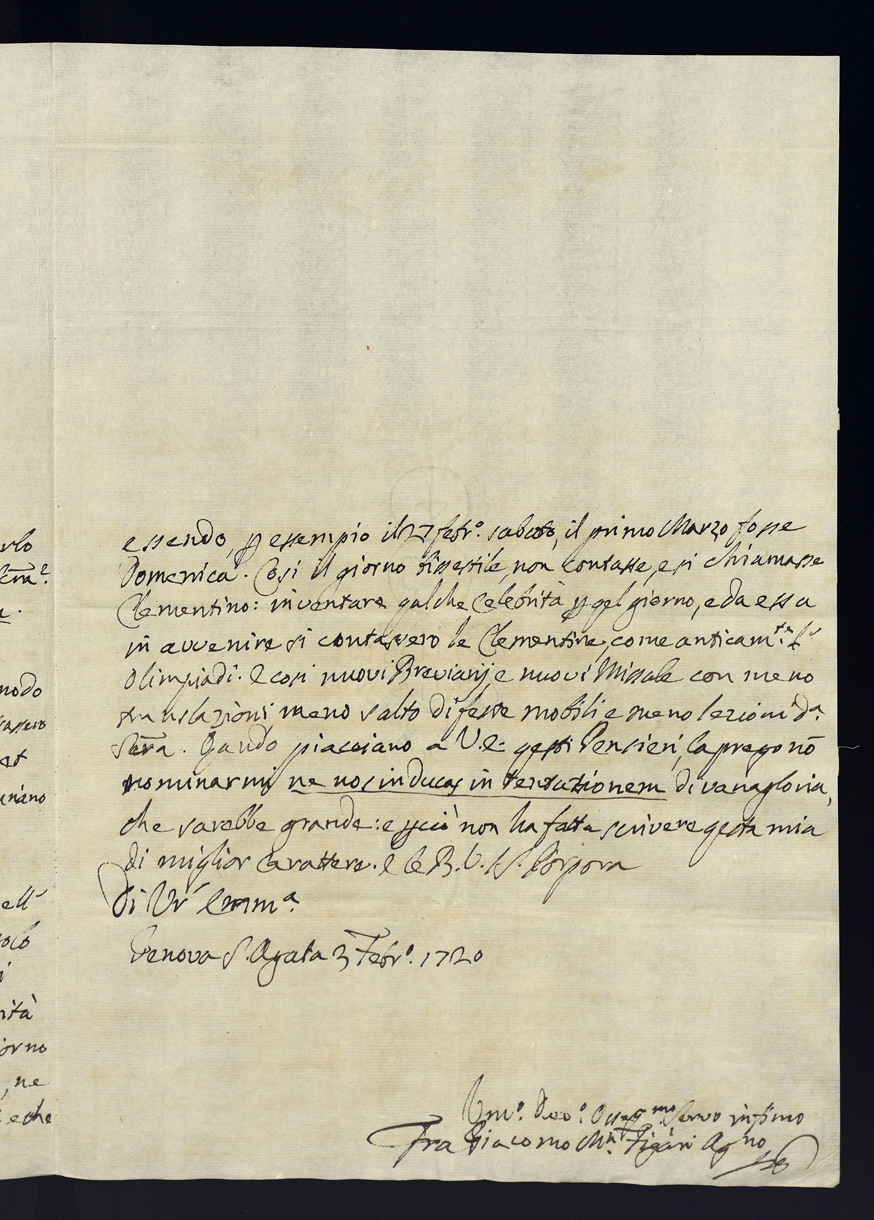 essendo, p essempio il 27 febr.o sabato, il primo Marzo fosse
Domenica. Così il giorno bissestile, non contasse, e si chiamasse
Clementino: inventare qalche Celebrità p qel giorno, e da essa
in avvenire si contassero le Clementine, come anticam.te l'
Olimpiadi. E così nuovi Breviarij e nuovi Missale con meno
translazioni meno salto di feste mobili e meno lezioni d.a
Sc̃ra. Qando piacciano a V.E. qesti Pensieri, la prego nō
nominarmi ne nos inducas in tentationem di vanagloria,
che sarebbe grande: e p ciò non ho fatta scrivere qesta mia
di miglior Carattere. E le B. V. S. Porpora
Di Vr̃ Emm.a
Genova S. Agata 3 Febr.o 1720
Um.o Dev.o Osseq.mo Servo infimo
Fra Giacomo M.a Figari Ag.no
rlo
modo
assero
unano
ell'
olo
ità
iorno
, ne
e che